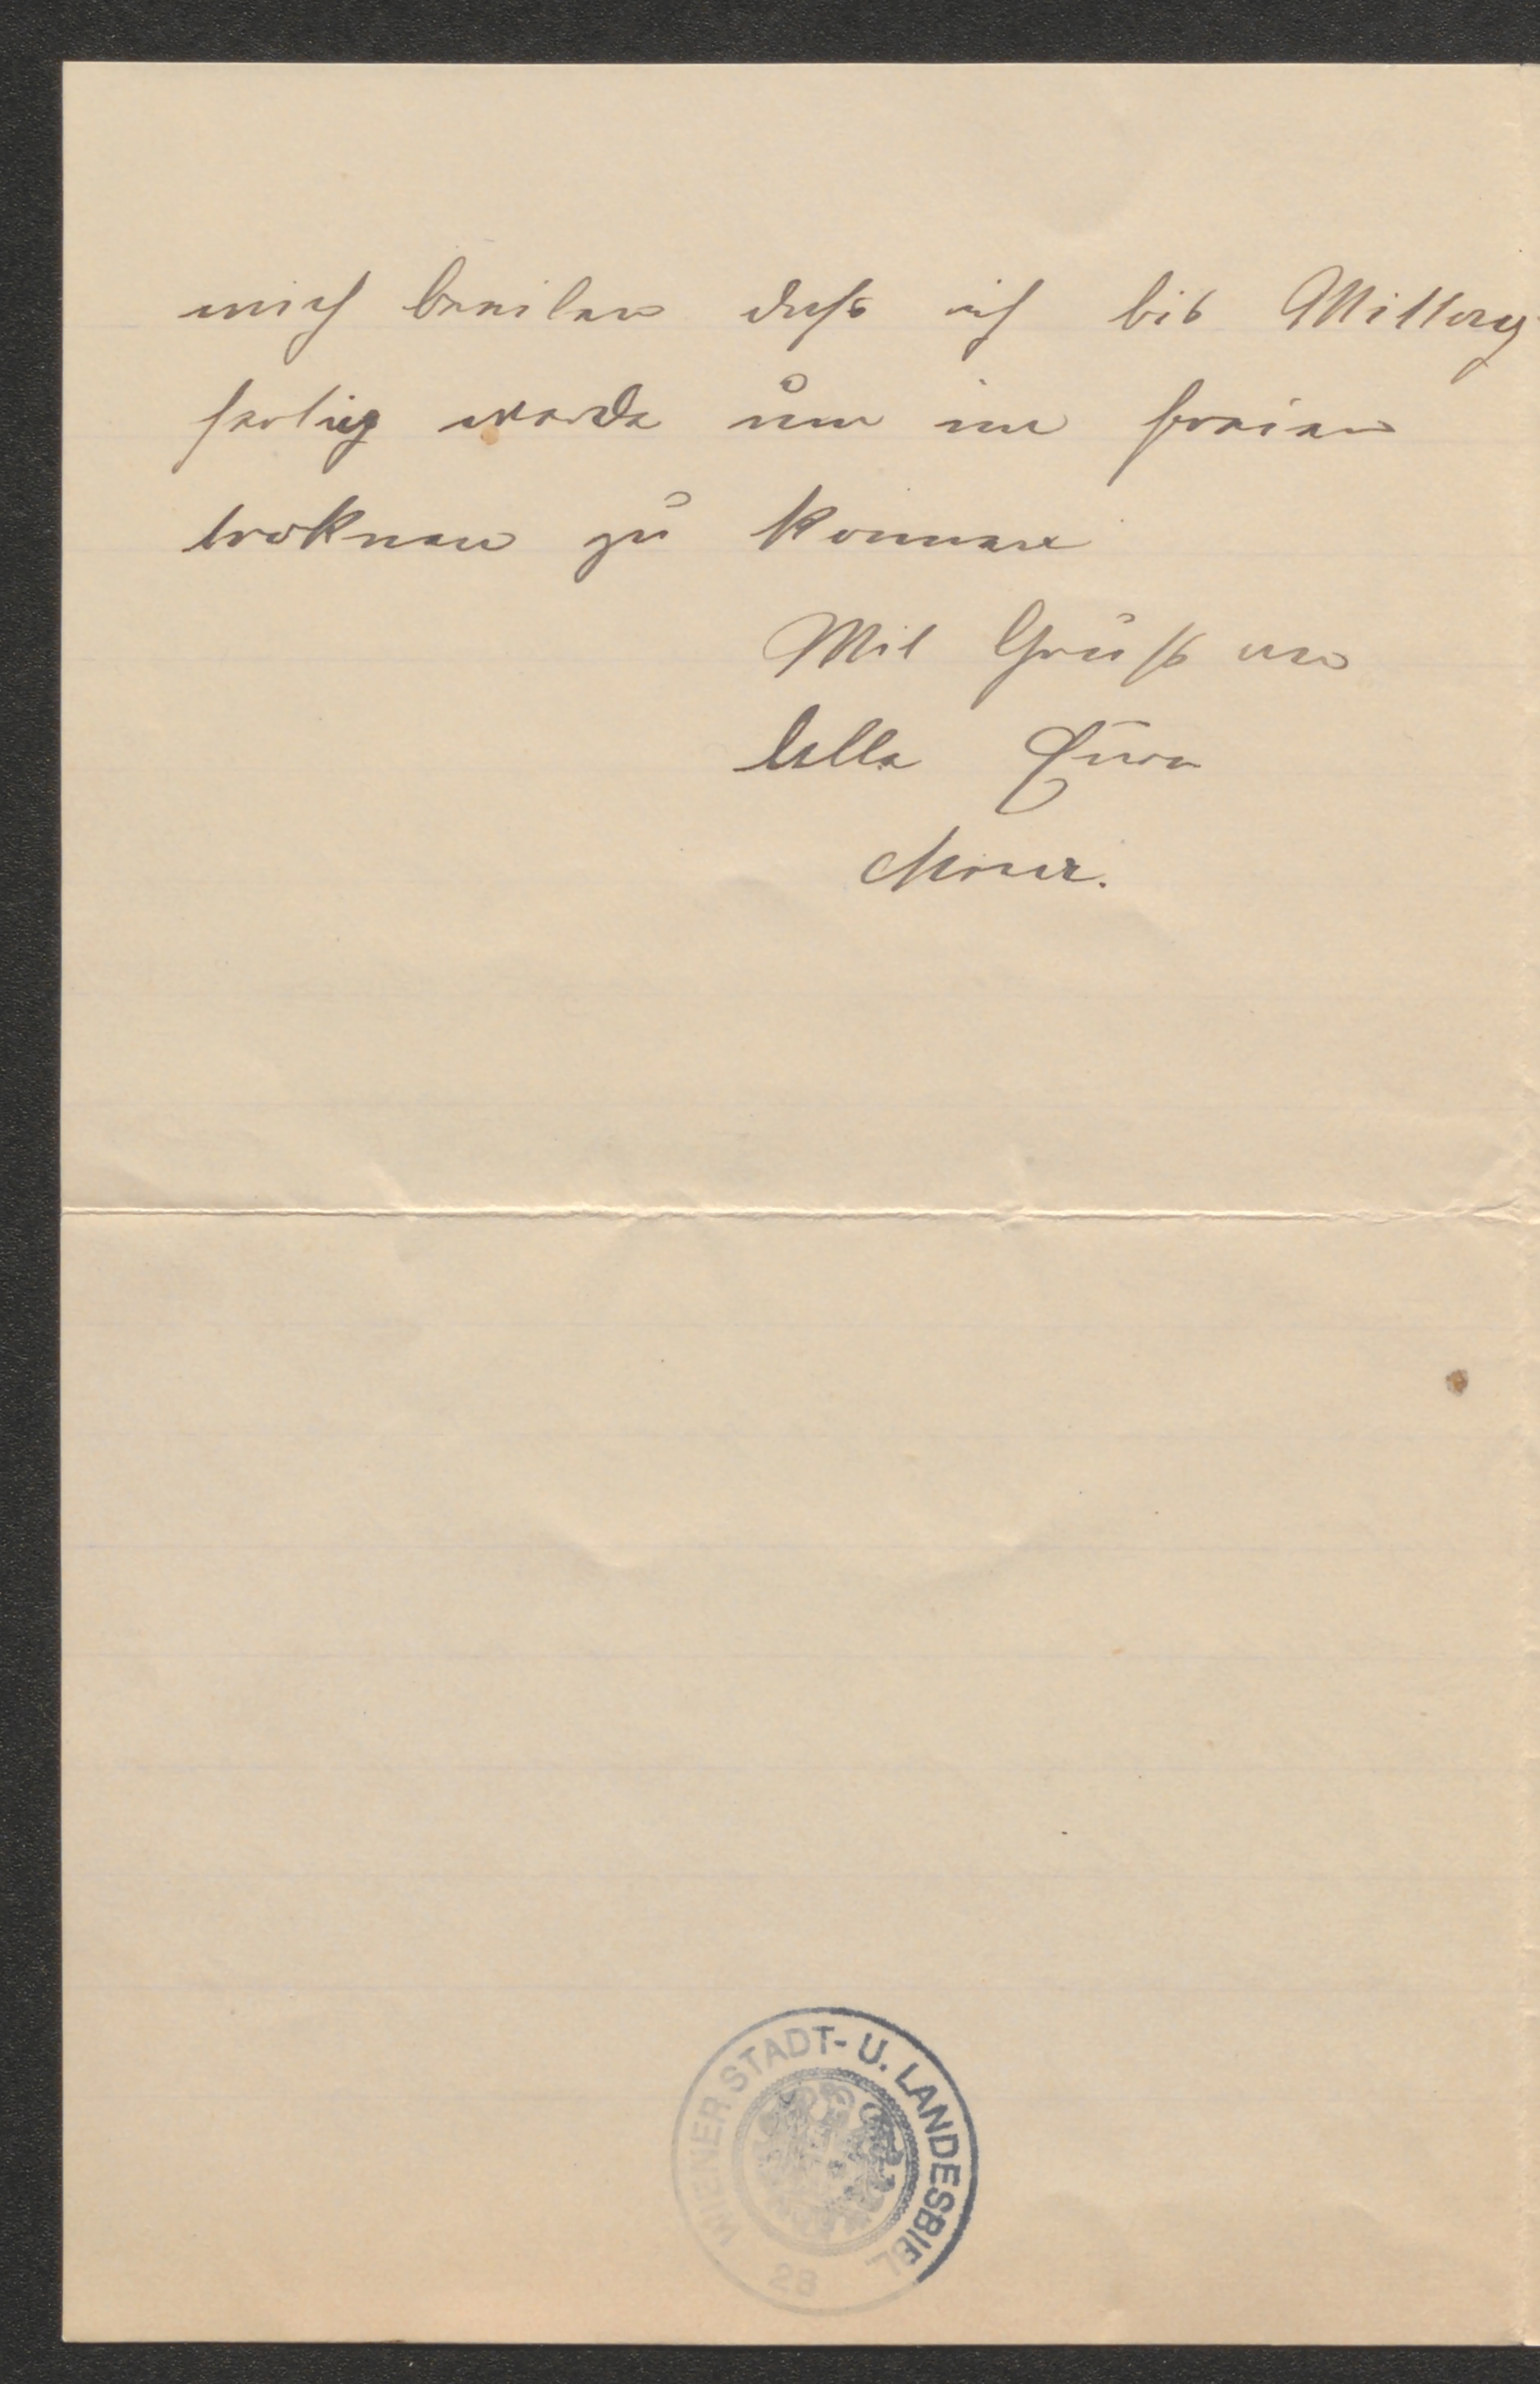 mich beeilen daß ich bis Mittag
fertig werde um im freien
troknen zu konnen
Mit Gruß an
alle Eure
WIENER STADT- U. LANDESBIBL.
28